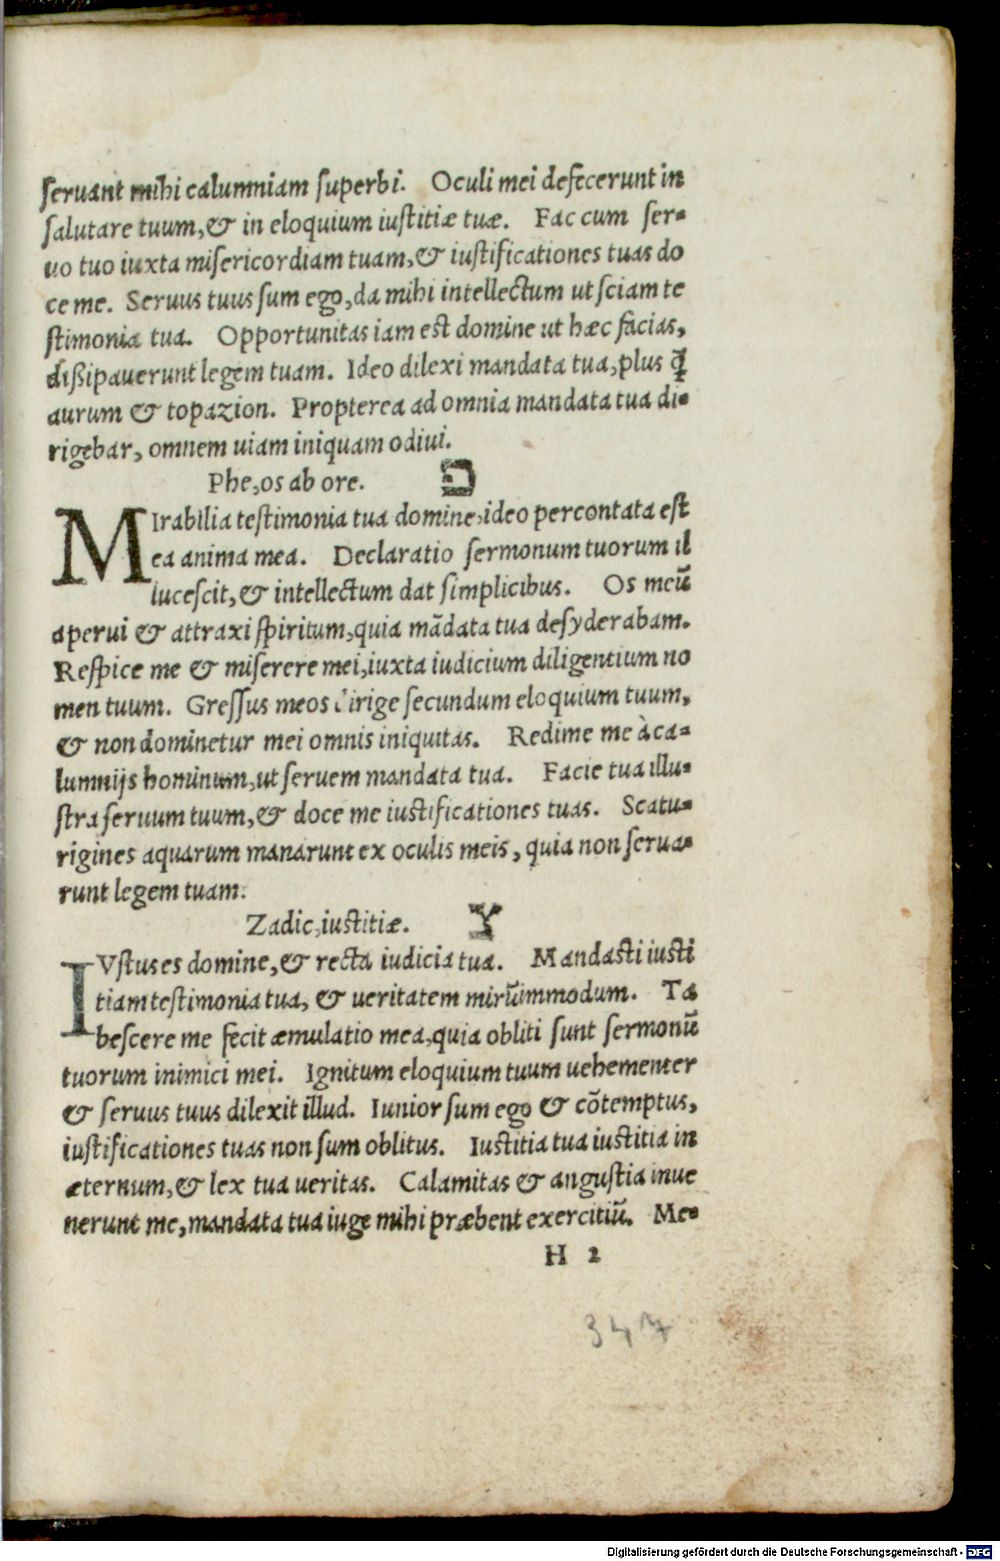 seruant mihi calumniam superbi. Oculi mei defecerunt in
salutare tuum,& in eloquium iustitiæ tuæ. Fac cum ser-
uo tuo iuxta misericordiam tuam,& iustificationes tuas do
ce me. Seruus tuus sum ego,da mihi intellectum ut sciam te
stimonia tua. Opportunitas iam est domine ut hæc facias,
dißipauerunt legem tuam. Ideo dilexi mandata tua,plus q̃
aurum & topazion. Propterea ad omnia mandata tua di-
rigebar, omnem uiam iniquam odiui.
Phe,os ab ore. פ
MIrabilia testimonia tua domine,ideo percontata est
ea anima mea. Declaratio sermonum tuorum il
lucescit,& intellectum dat simplicibus. Os meũ
aperui & attraxi spiritum,quia mãdata tua desyderabam.
Respice me & miserere mei,iuxta iudicium diligentium no
men tuum. Gressus meos dirige secundum eloquium tuum,
& non dominetur mei omnis iniquitas. Redime me à ca-
lumnijs hominum,ut seruem mandata tua. Facie tua illu-
stra seruum tuum,& doce me iustificationes tuas. Scatu-
rigines aquarum manarunt ex oculis meis, quia non serua-
runt legem tuam.
Zadic,iustitiæ. צ
IVstus es domine,& recta iudicia tua. Mandasti iusti
tiam testimonia tua, & ueritatem mirũimmodum. Ta
bescere me fecit æmulatio mea,quia obliti sunt sermonũ
tuorum inimici mei. Ignitum eloquium tuum uehementer
& seruus tuus dilexit illud. Iunior sum ego & cõtemptus,
iustificationes tuas non sum oblitus. Iustitia tua iustitia in
æternum,& lex tua ueritas. Calamitas & angustia inue
nerunt me,mandata tua iuge mihi præbent exercitiũ. Me-
H 2
347
Digitalisierung gefördert durch die Deutsche Forschungsgemeinschaft - DFG